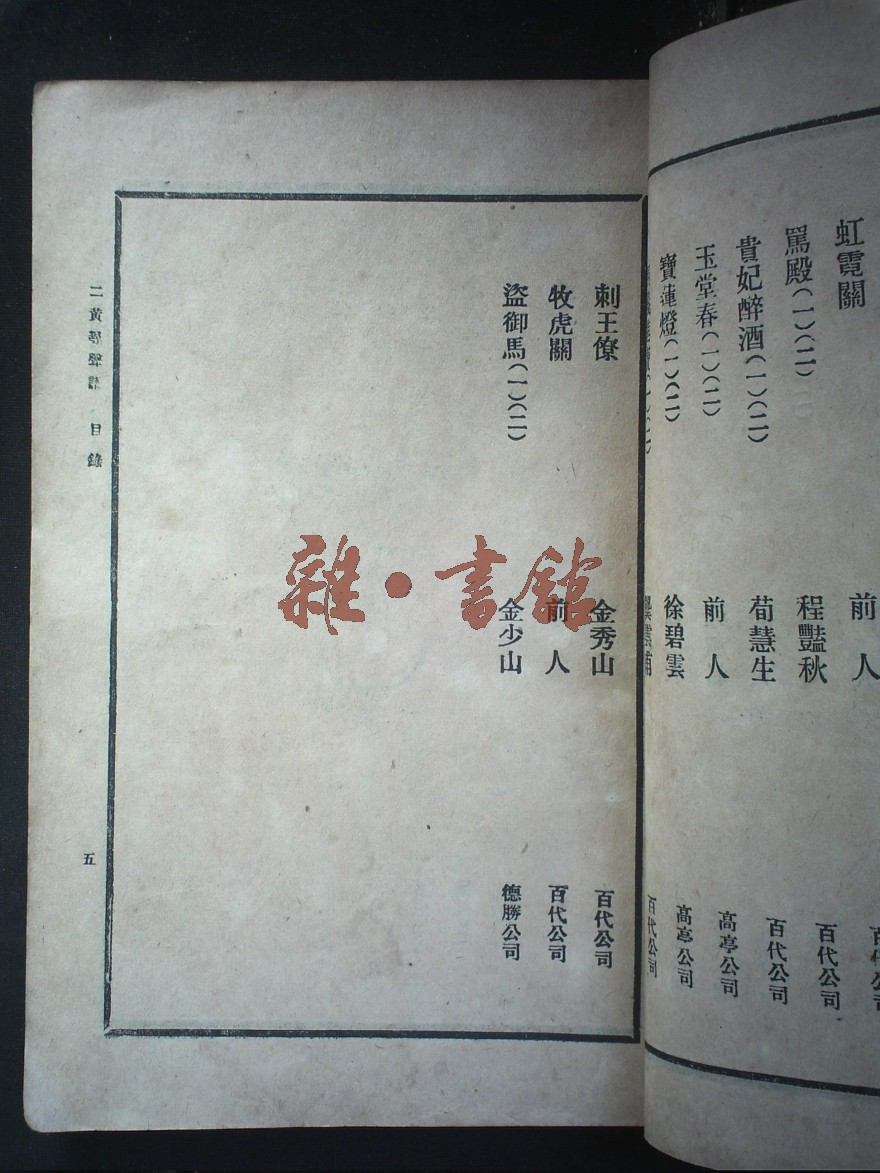 虹霓關 前人
罵殿(一)(二) 程豔秋 百代公司
貴妃醉酒(一)(二) 荀慧生 百代公司
玉堂春(一)(二) 前人 高亭公司
寶蓮燈(一)(二) 徐碧雲 高亭公司
百代公司
刺王僚 金秀山 百代公司
牧虎關 前人 百代公司
盜御馬(一)(二) 金少山 德勝公司
二黃 目錄
五
雜·書館